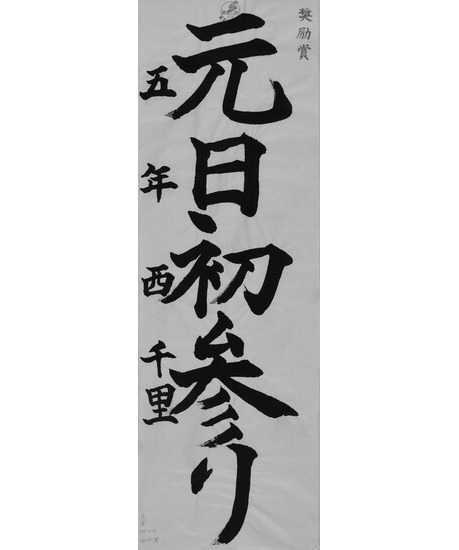 奨励賞
元日初参り
五年 西千里